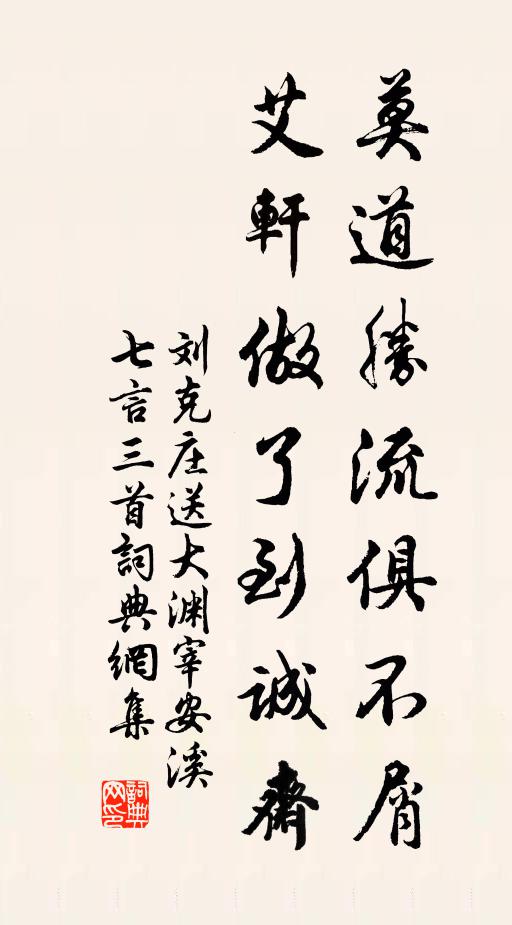 莫道勝流俱不屑
艾軒做了到誠齋
刘克庄送大渊宰安溪
七言三首詞典網集
詞典网印